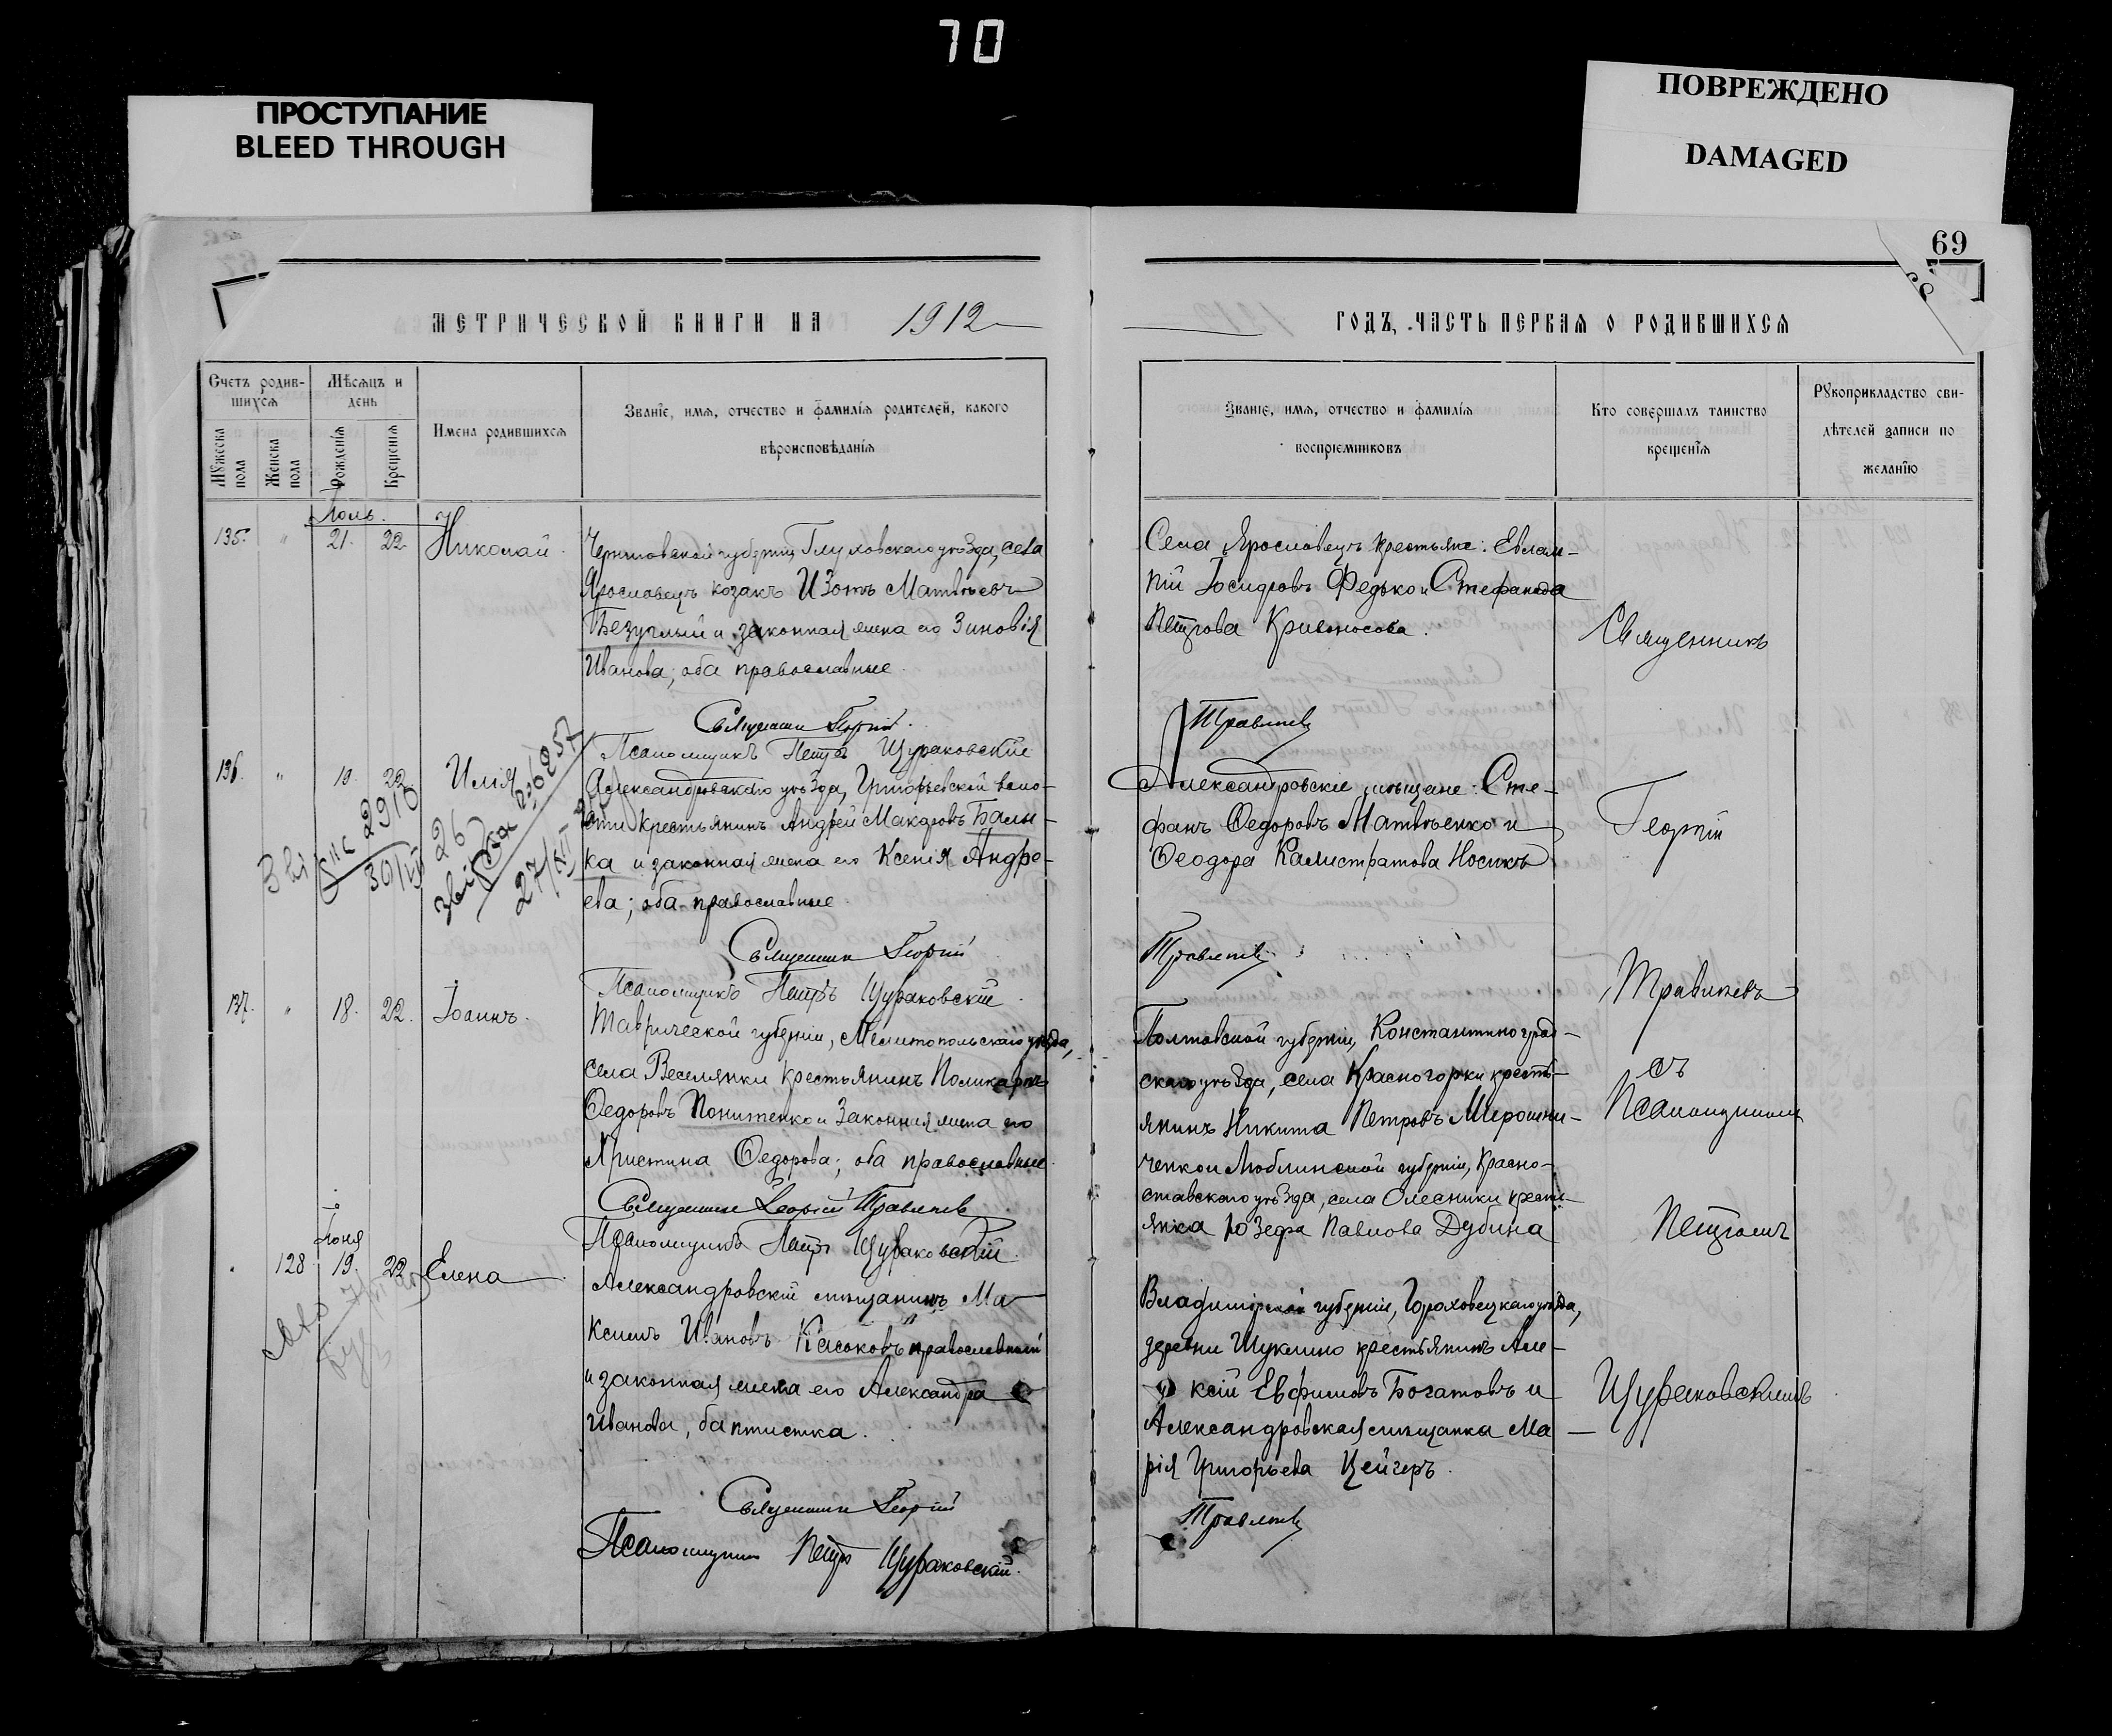 70
ПРОСТУПАНИЕ
BLEED THROUGH
ПОВРЕЖДЕНО
DAMAGED
69
МЕТРИЧЕСКОЙ КНИГИ НА 1912
ГОДЪ, ЧАСТЬ ПЕРВАЯ О РОДИВШИХСЯ
Счетъ родив-
шихся
Мужеска пола
Женска пола
Мѣсяцъ и
день
Рожденія
Крещенія
Имена родившихся
Званіе, имя, отчество и фамилія родителей, какого
вѣроисповѣданія
Званіе, имя, отчество и фамилія
воспріемниковъ
Кто совершалъ таинство
крещенія
Рукоприкладство сви-
дѣтелей записи по
желанію
Іюль.
135. " 21. 22. Николай.
Черниговской губерніи, Глуховскаго уѣзда, села
Ярославецъ козакъ Изотъ Матвѣевъ
Безуглый и законная жена его Зиновія
Иванова, оба православные.
Священникъ Георгій
Псаломщикъ Петръ Щураковскій
Села Ярославецъ крестьяне: Евлам-
пій Іосифовъ Федько и Стефанида
Петрова Кривоносова.
Травлевъ
136. " 19. 22. Илія
Александровскаго уѣзда, Григорьевской воло-
сти крестьянинъ Андрей Макаровъ Балы-
ка и законная жена его Ксенія Андре-
ева; оба православные.
Священникъ Георгій
Псаломщикъ Петръ Щураковскій.
2910
30/VII
26
27/XII
Александровскіе мѣщане: Сте-
фанъ Ѳедоровъ Матвѣенко и
Ѳеодора Калистратова Носикъ
137. " 18. 22. Іоаннъ.
Таврической губерніи, Мелитопольскаго уѣзда,
села Веселянки крестьянинъ Поликарпъ
Ѳедоровъ Понитенко и законная жена его
Христина Ѳедорова; оба православные.
Священникъ Георгій
Псаломщикъ Петръ Щураковскій.
Полтавской губерніи, Константиноград-
скаго уѣзда, села Красногорки кресть-
янинъ Никита Петровъ Мирошни-
ченко и Люблинской губерніи, Красно-
ставскаго уѣзда, села Олесники кресть-
янка Юзефа Павлова Дубина
Іюня
128 19. 22. Елена
Александровскій мѣщанинъ Ма-
ксимъ Ивановъ Касоковъ православный
и законная жена его Александра
Иванова, баптистка.
Священникъ Георгій
Псаломщикъ Петръ Щураковскій.
Владимірской губерніи, Гороховецкаго уѣзда,
деревни Шуклино крестьянинъ Але-
ксій Евфимовъ Богатовъ и
Александровская мѣщанка Ма-
рія Григорьева Цейгеръ.
Священникъ
Георгій
съ
Псаломщикомъ
Петромъ
Щураковскимъ